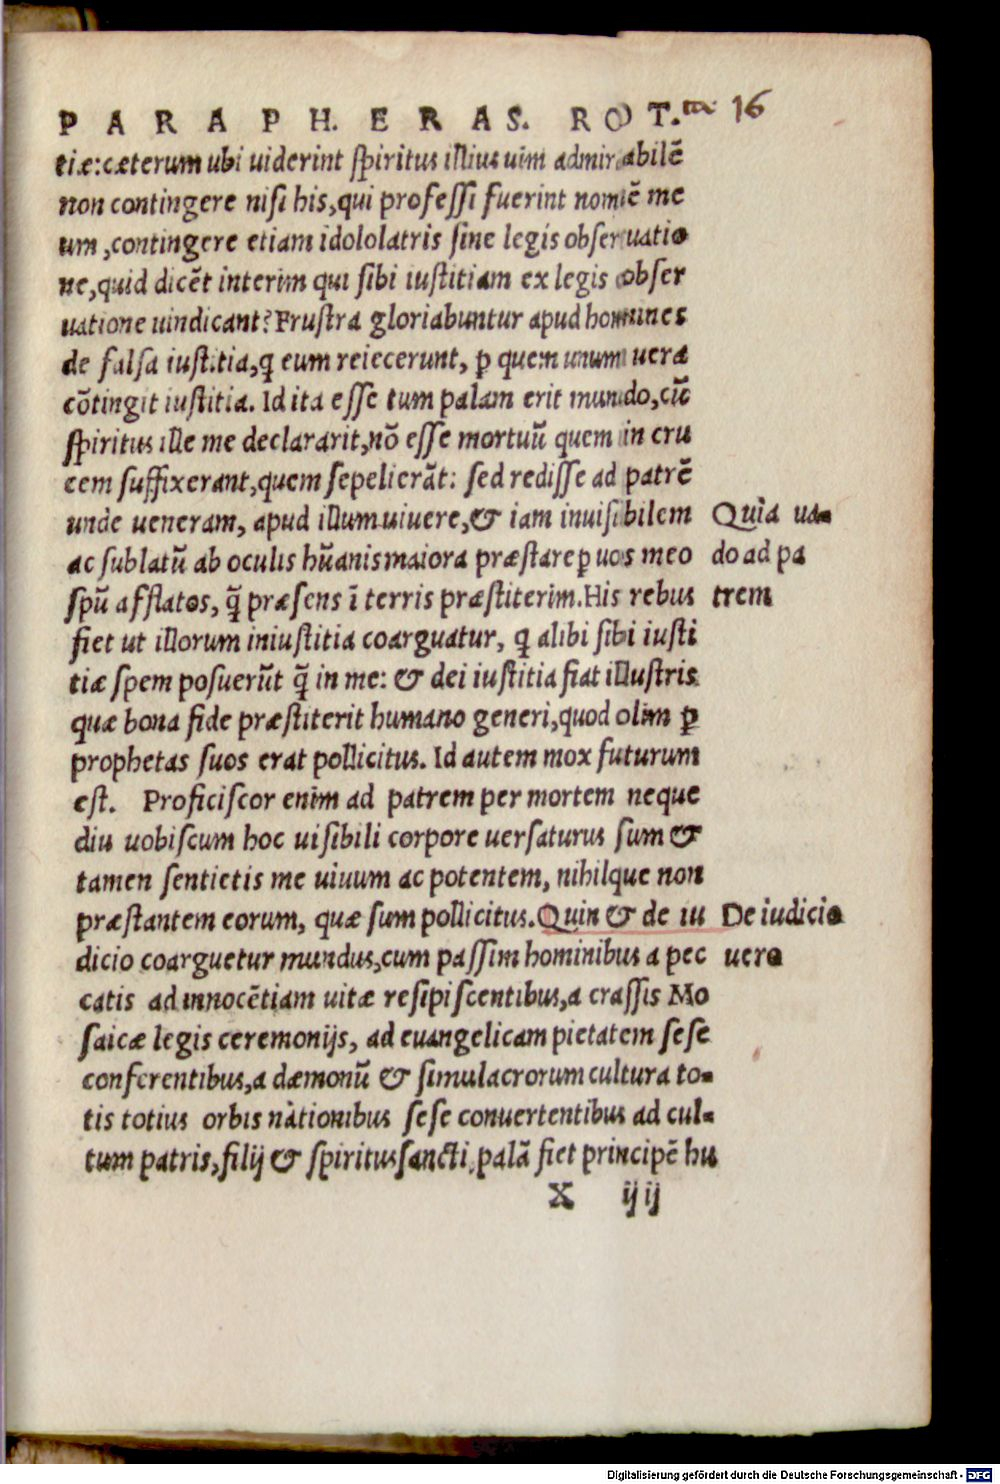 PARAPH. ERAS. ROT. 16
tiæ: cæterum ubi uiderint spiritus illius uim admirabilē
non contingere nisi his, qui professi fuerint nomē me
um, contingere etiam idololatris sine legis obseruatio
ne, quid dicēt interim qui sibi iustitiam ex legis obser
uatione uindicant? Frustra gloriabuntur apud homines
de falsa iustitia, q̨ eum reiecerunt, ꝑ quem unum uera
cōtingit iustitia. Id ita esse tum palam erit mundo, cū
spiritus ille me declararit, nō esse mortuū quem in cru
cem suffixerant, quem sepelierāt: sed redisse ad patrē
unde ueneram, apud illum uiuere, & iam inuisibilem
Quia ua-
ac sublatū ab oculis hūanis maiora præstare ꝑ uos meo
do ad pa
spū afflatos, q̄ præsens ī terris præstiterim. His rebus
trem
fiet ut illorum iniustitia coarguatur, q̨ alibi sibi iusti
tiæ spem posuerūt q̄ in me: & dei iustitia fiat illustris
quæ bona fide præstiterit humano generi, quod olim ꝑ
prophetas suos erat pollicitus. Id autem mox futurum
est. Proficiscor enim ad patrem per mortem neque
diu uobiscum hoc uisibili corpore uersaturus sum &
tamen sentietis me uiuum ac potentem, nihilque non
præstantem eorum, quæ sum pollicitus. Quin & de iu
De iudicio
dicio coarguetur mundus, cum passim hominibus a pec
uero
catis ad innocētiam uitæ resipiscentibus, a crassis Mo
saicæ legis ceremonijs, ad euangelicam pietatem sese
conferentibus, a dæmonū & simulacrorum cultura to-
tis totius orbis nàtionibus sese conuertentibus ad cul-
tum patris, filij & spiritus sancti, palā fiet principē hu
X iiij
Digitalisierung gefördert durch die Deutsche Forschungsgemeinschaft - DFG